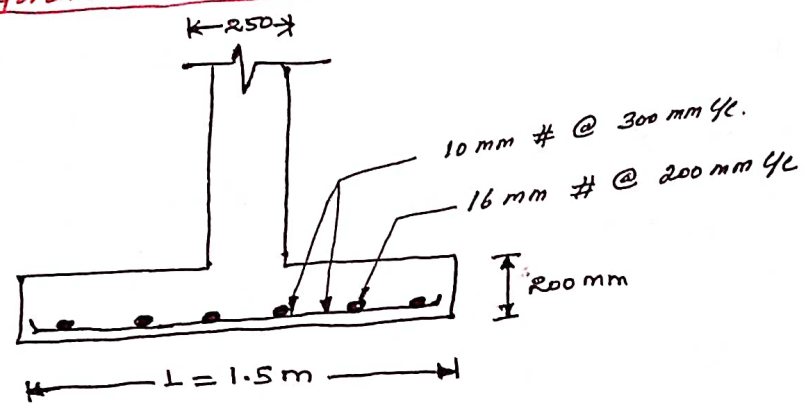 250
10 mm # @ 300 mm c/c.
16 mm # @ 200 mm c/c
200 mm
L = 1.5 m